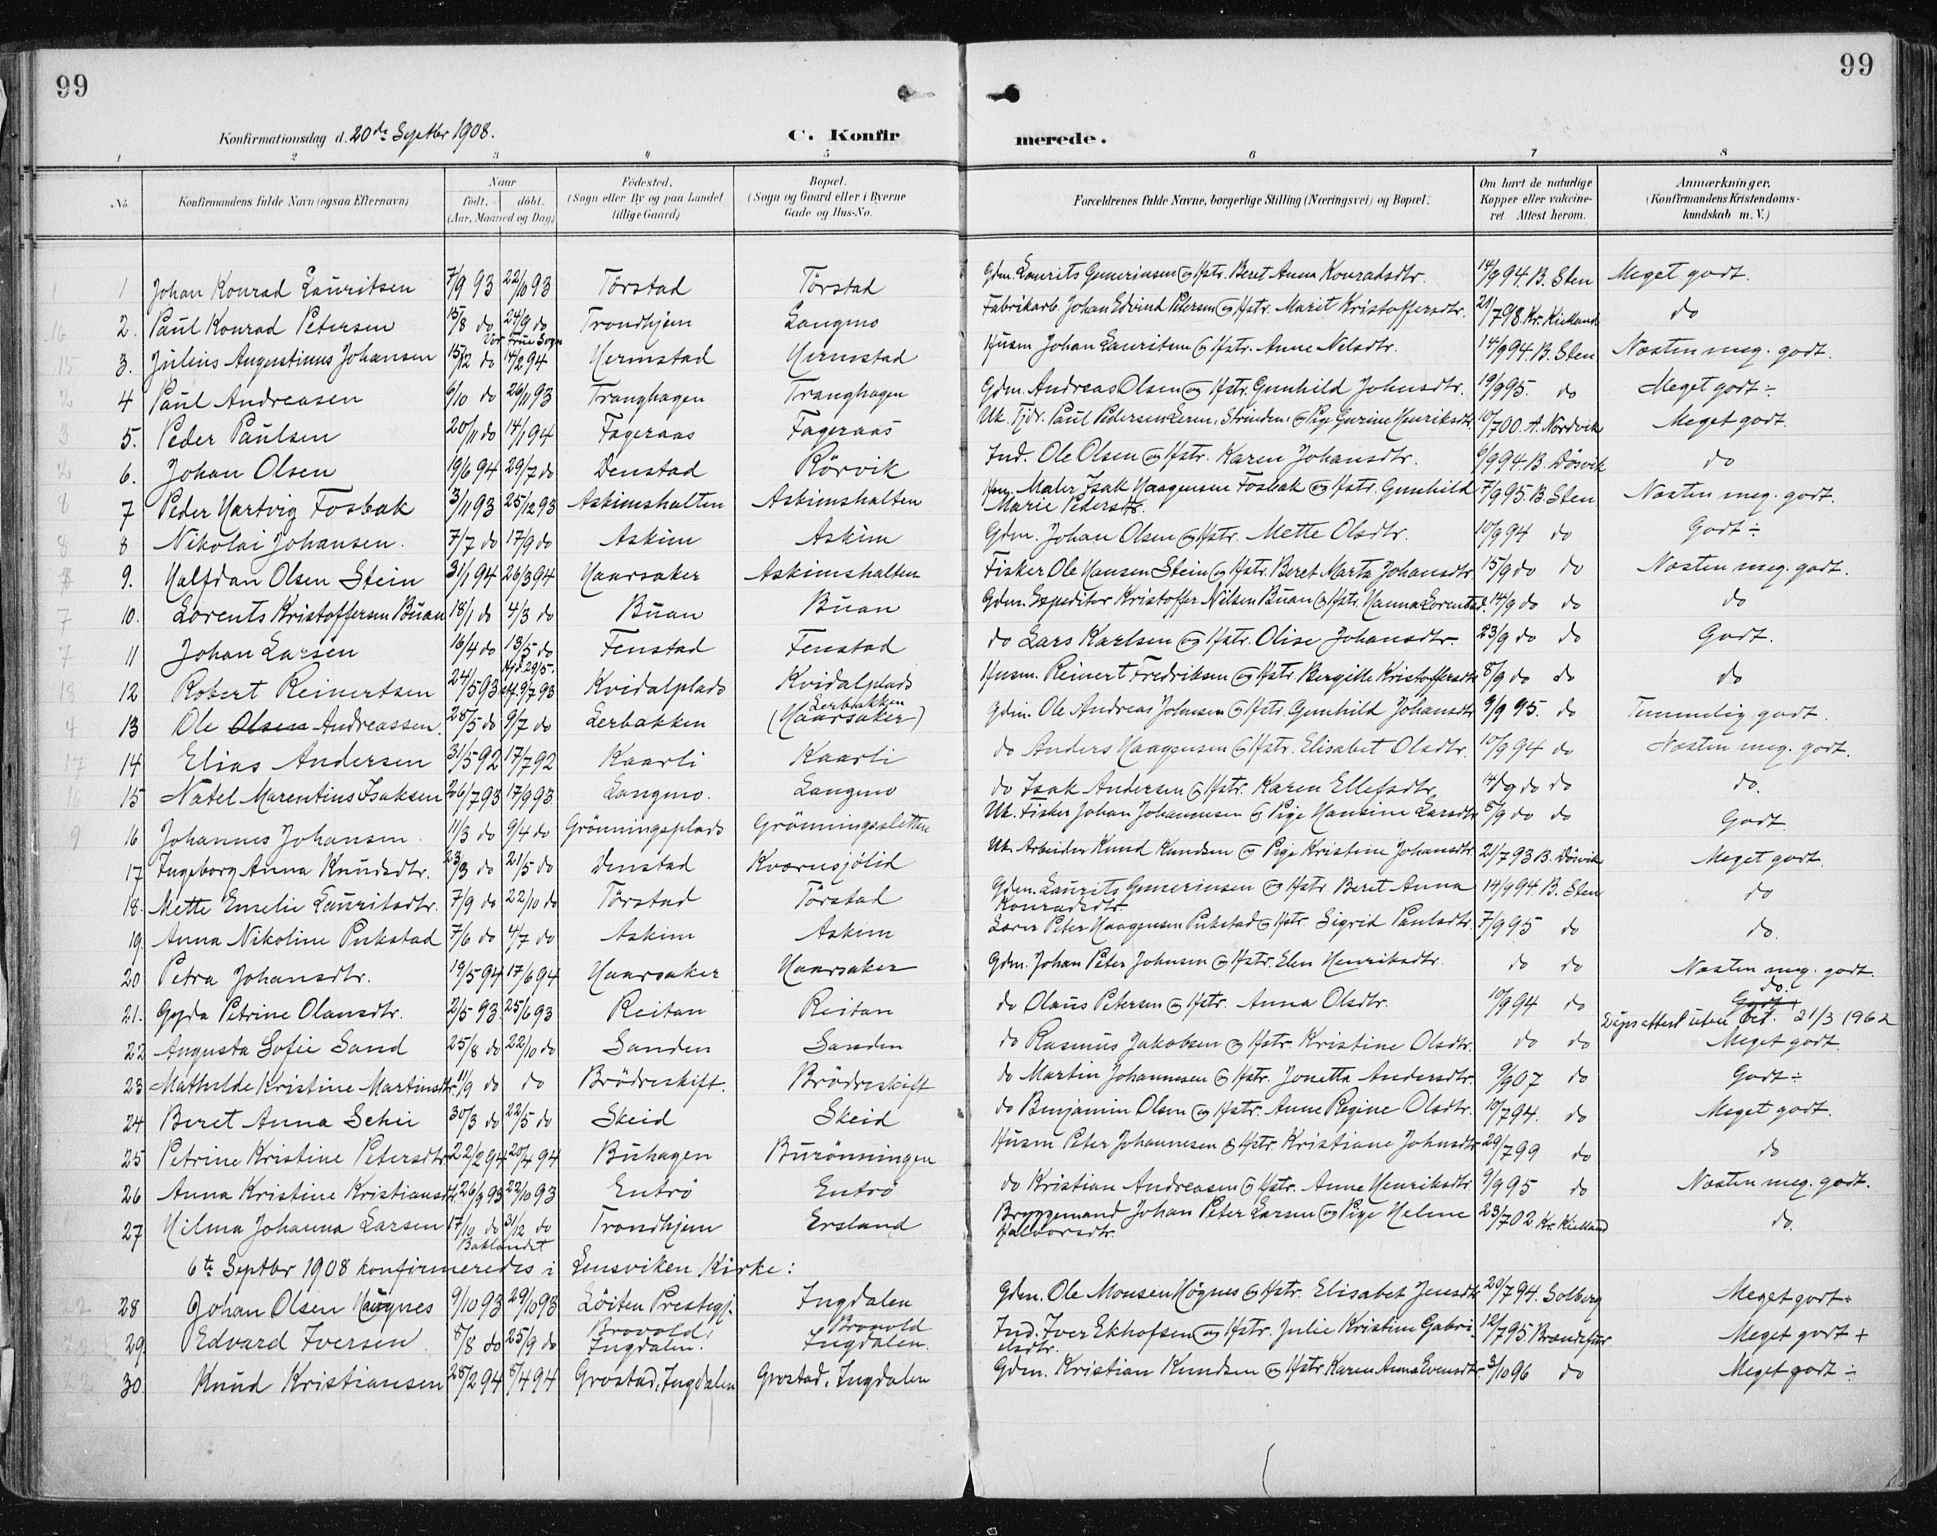 99
99
Konfirmationsdag d. 20de Septbr 1908.
C. Konfir
merede.
1 2 3 4 5 6 7 8
No. Konfirmandens fulde Navn (ogsaa Efternavn) Naar födt. döbt. (Aar, Maaned og Dag.) Födested. (Sogn eller By og paa Landet tillige Gaard) Bopæl. (Sogn og Gaard eller i Byerne Gade og Hus-No. Forældrenes fulde Navne, borgerlige Stilling (Næringsvei) og Bopæl. Om havt de naturlige Kopper eller vakcineret. Attest herom. Anmærkninger. (Konfirmandens Kristendomskundskab m. V.)
1 Johan Konrad Lauritsen 7/9 93 22/10 93 Törstad Törstad Gdm. Laurits Gunerinsen og Hstr. Beret Anna Konradsdtr. 14/9 94. B. Sten Meget godt.
2. Paul Konrad Petersen 15/8 do 24/9 do Vor Frue Sogn Trondhjem Langmo Fabrikarb. Johan Edvind Petersen og Hstr. Marit Kristoffersdtr. 21/7 98. Kr. Kielland do
3. Julius Augustinus Johansen 15/12 do 14/2 94 Hermstad Hermstad Husm. Johan Lauritsen og Hstr. Anne Nelsdtr. 14/9 94. B. Sten Næsten meg. godt.
4 Paul Andreasen 6/10 do 26/11 93 Tranghagen Tranghagen Gdm. Andreas Olsen og Hstr. Gunhild Johnsdtr. 19/9 95. do Meget godt÷
5. Peder Paulsen 20/11 do 14/1 94 Fageraas Fageraas Uk. Tjdr. Paul Pedersen Leren, Strinden og Pige Gurine Henriksdtr. 10/7 00. A. Nordvik Meget godt.
6. Johan Olsen 19/6 94 29/7 do Denstad Rörvik Ind. Ole Olsen og Hstr. Karen Johansdtr. 6/9 94 B. Dösvik do
7 Peder Hartvig Fosbak 3/11 93 25/12 93 Askimshalten Askimshalten Hm. Maler Isak Haagensen Fosbak og Hstr. Gunhild Marie Pedersdtr. 7/9 95. B. Sten Næsten meg. godt.
8 Nikolai Johansen. 7/7 do 17/9 do Askim Askim Gdm. Johan Olsen og Hstr. Mette Olsdtr. 10/9 94 do Godt÷
9. Halfdan Olsen Stein 31/1 94 26/3 94 Haarsaker Askimshalten Fisker Ole Hansen Stein og Hstr. Beret Marta Johansdtr. 15/9 do do Næsten meg. godt.
10. Lorents Kristoffersen Buan 18/1 do 4/3 do Buan Buan Gdm. Expeditör Kristoffer Nilsen Buan og Hstr. Hanna Lorentsd. 14/9 do do do
11 Johan Larsen 16/4 do 13/5 do Fenstad Fenstad do Lars Karlsen og Hstr. Olise Johansdtr. 23/9 do do Godt.
12 Robert Reinertsen 24/5 93 Hjd. 29/5. stf. 9/7 93 Kvidalplads Kvidalplads Husm. Reinert Fredriksen og Hstr. Bergitte Kristoffersdtr. 8/9 do do do
13 Ole Olsen Andreassen. 28/5 do 9/7 do Lerbakken Lerbakken (Haarsaker) Gdm. Ole Andreas Johnsen og Hstr. Gunhild Johansdtr 9/9 95. do Temmelig godt.
14 Elias Andersen 31/5 92 17/7 92 Kaarli Kaarli do Anders Haagensen og Hstr. Elisabet Olsdtr. 10/9 94 do Næsten meg. godt.
15 Natel Marentius Isaksen 26/7 93 17/9 93 Langmo. Langmo do Isak Andersen og Hstr. Karen Ellefsdtr. 14/9 do do do.
16 Johannes Johansen. 11/3 do 9/4 do Grönningsplads Grönningssletten Uk. Fisker Johan Johannesen og Pige Hansine Larsdtr 8/9 do do Godt
17 Ingeborg Anna Knudsdtr. 23/3 do 21/5 do Denstad Kvernsjölid Uk. Arbeider Knud Knudsen og Pige Kristine Johansdtr 21/7 93 B. Dösvik Meget godt.
18. Mette Emelie Lauritsdtr. 7/9 do 22/10 do Törstad Törstad Gdm. Laurits Gunerinsen og Hstr Beret Anna Konradsdtr. 14/9 94 B. Sten do
19. Anna Nikoline Pukstad 7/6 do 4/7 do Askim Askim Lærer Peter Haagensen Pukstad og Hstr. Sigrid Paulsdtr. 7/9 95. do do.
20 Petra Johansdtr. 19/5 94 17/6 94 Haarsaker Haarsaker Gdm. Johan Peter Johnsen og Hstr. Elen Henriksdtr. do do Næsten meg. godt.
21. Gyda Petrine Olansdtr. 2/5 93. 25/6 93 Reitan Reitan do Olaus Petersen og Hstr. Anna Olsdtr. 10/9 94 do do. Godt+ Dåpsattest utsted 21/3 1962
22 Augusta Sofie Sand 25/8 do 22/10 do Sanden Sanden do Rasmus Jakobsen og Hstr. Kristine Olsdtr. do do Meget godt.
23 Mathilde Kristine Martinsdtr. 11/9 do do Brödreskift. Brödreskift do Martin Johannesen og Hstr. Jonetta Andersdtr. 9/9 07 do Godt÷
24 Beret Anna Schei 30/3 do 22/5 do Skeid Skeid do Benjamin Olsen og Hstr. Anne Regine Olsdtr. 10/7 94. do Meget godt.
25 Petrine Kristine Petersdtr 22/2 94 20/4 94 Buhagen Burönningen Husm Peter Johannesen og Hstr. Kristiane Johnsdtr 29/7 99 do do
26 Anna Kristine Kristiansdtr. 26/9 93 22/10 93 Entrö Entrö do Kristian Andreasen og Hstr. Anne Henriksdtr. 9/9 95 do Næsten meg. godt.
27 Hilma Johanna Larsen 17/10 do 31/12 do Baklandet Trondhjem Ersland Bryggemand Johan Peter Larsen og Pige Helene Halvorsdtr. 23/7 02. Kr. Kielland do.
6te Septbr 1908 konfirmeredes i Lensviken Kirke:
28 Johan Olsen Haugnes 9/10 93 29/10 93 Löiten Prestegj. Ingdalen Gdm. Ole Monsen Högnes og Hstr. Elisabet Jensdtr 20/7 94. Solberg Meget godt÷
29. Edvard Iversen 8/8 do 25/9 do Brovold, Ingdalen. Brovold Ingdalen. Ind. Iver Ekhofsen og Hstr. Julie Kristine Gabrielsdtr. 12/7 95 Brandtfur Meget godt +
30. Knud Kristiansen 28/2 94 8/4 94 Grostad, Ingdalen Grostad, Ingdalen Gdm. Kristian Knudsen og Hstr Karen Anna Evensdtr. 3/10 96 do Meget godt ÷